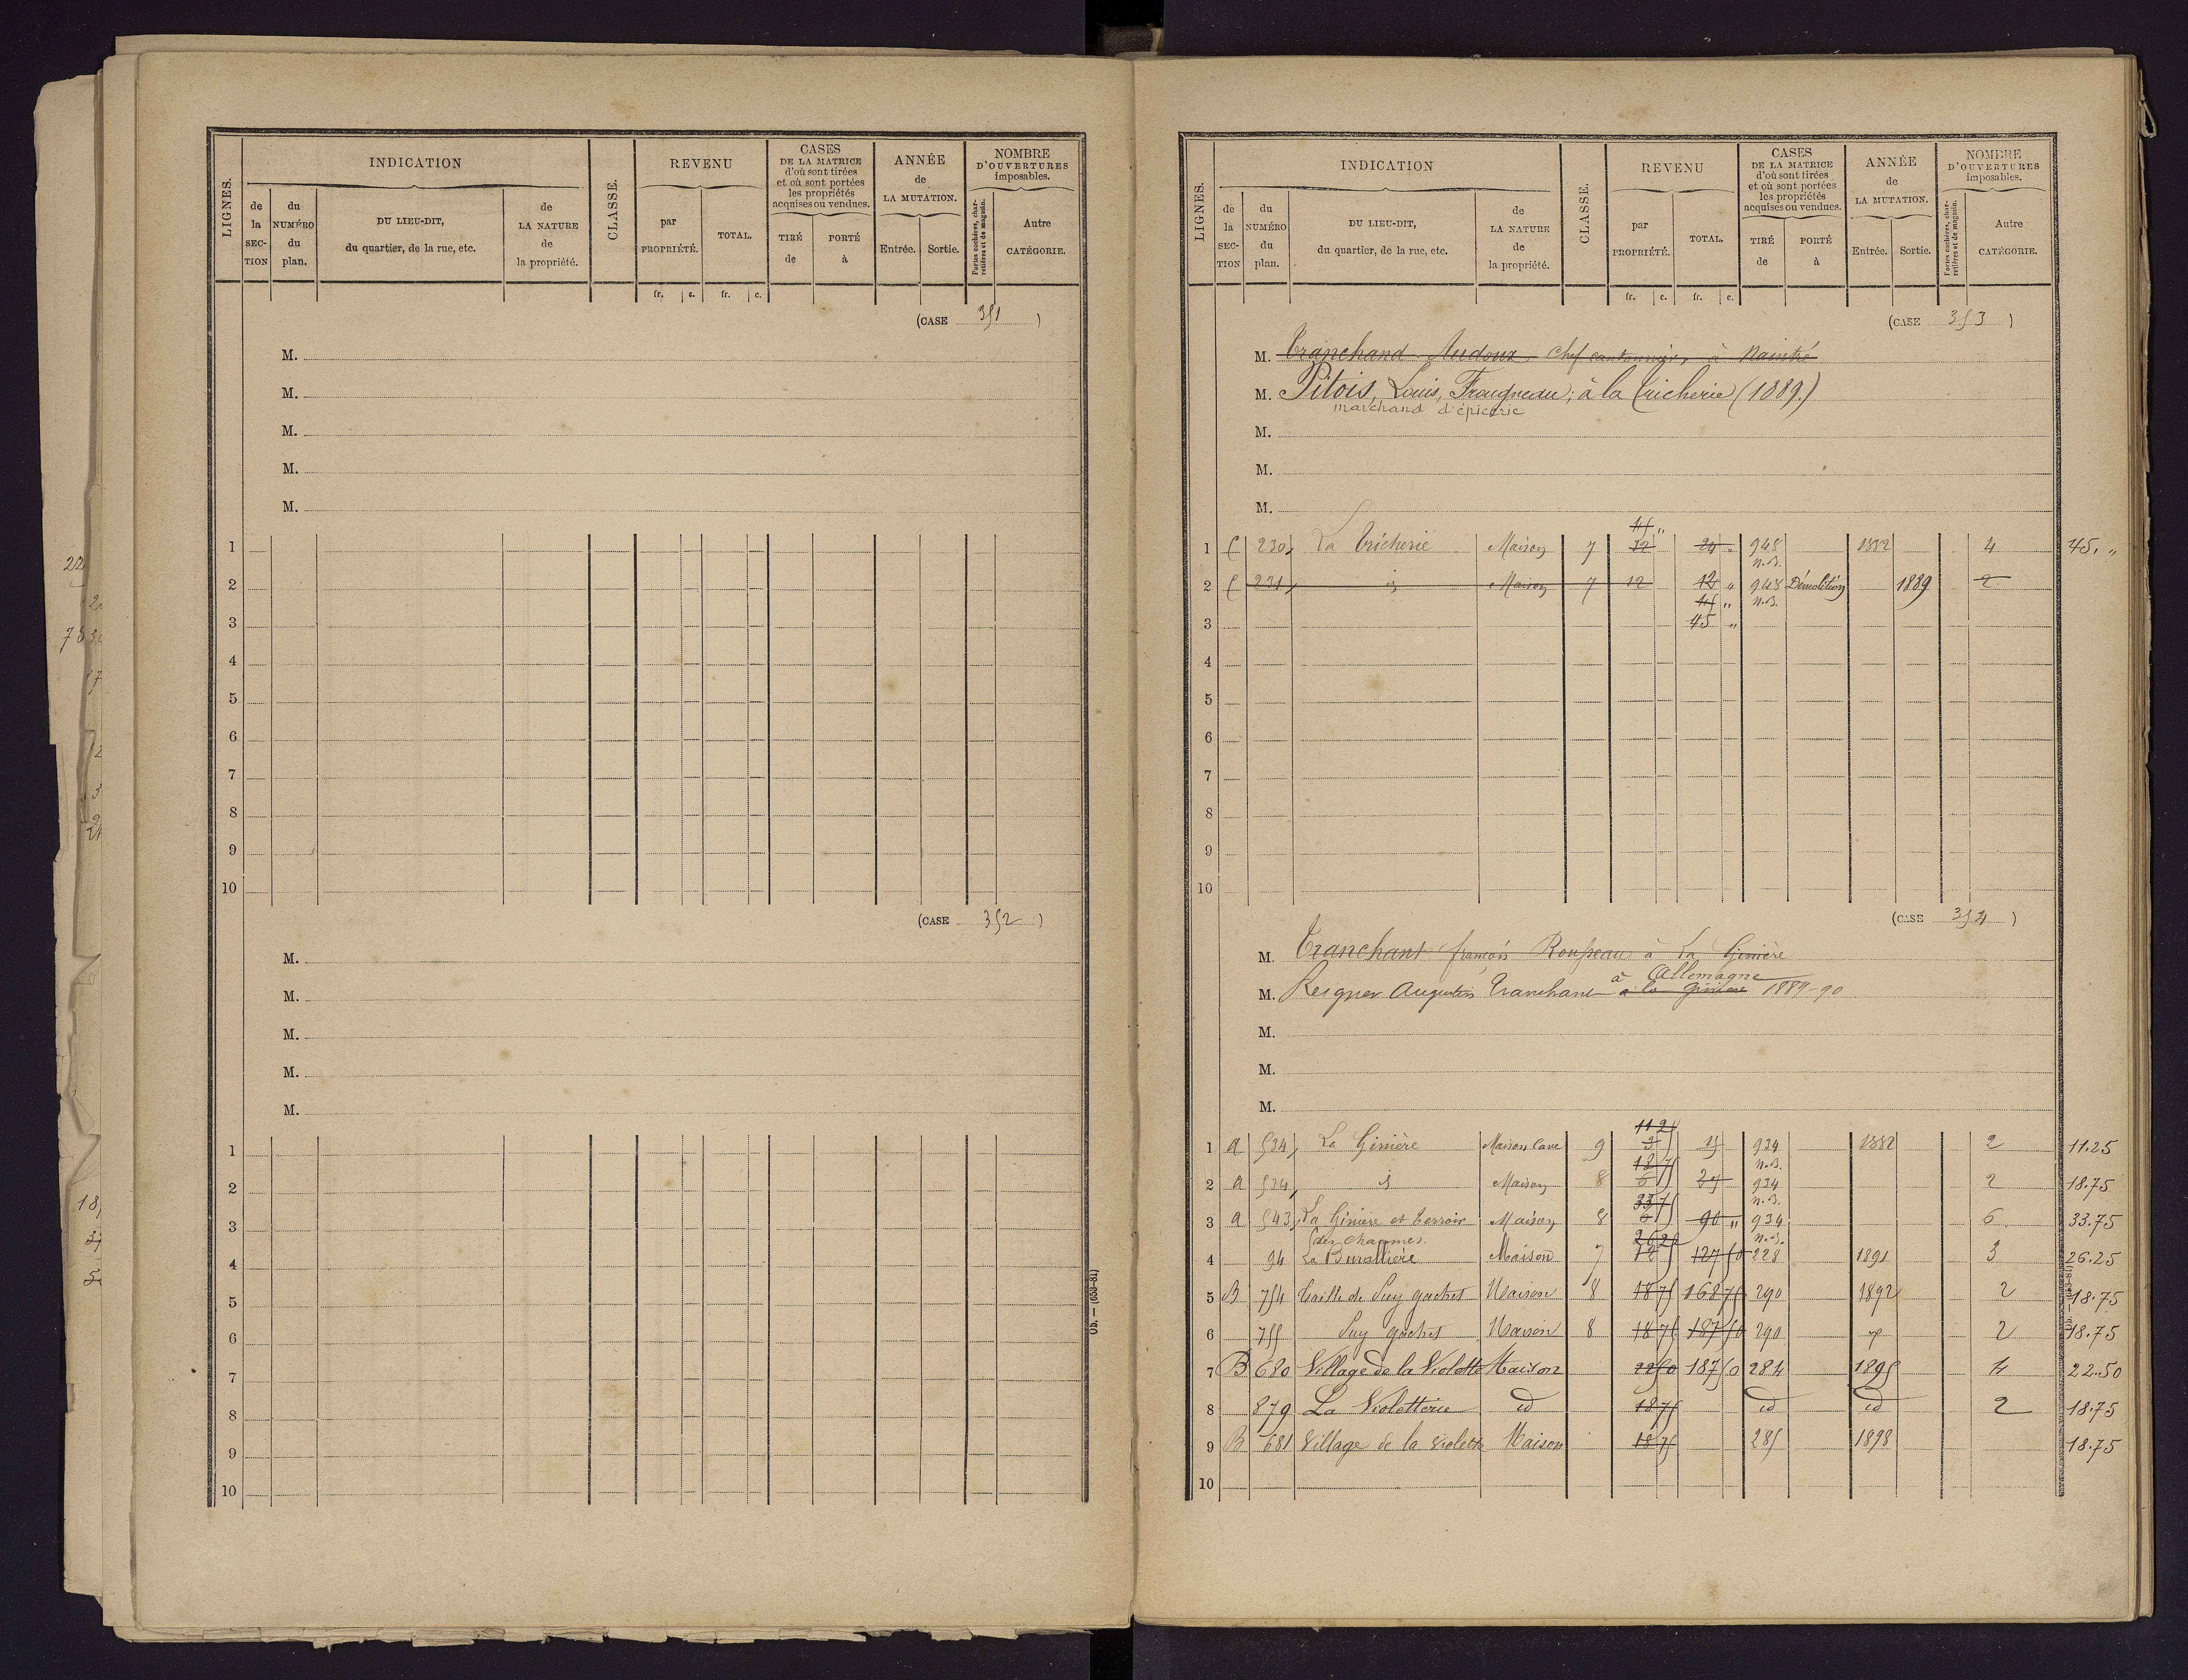 LIGNES.
INDICATION
de la SECTION
du NUMÉRO du plan.
DU LIEU-DIT, du quartier, de la rue, etc.
de LA NATURE de la propriété.
CLASSE.
REVENU
par PROPRIÉTÉ.
TOTAL.
fr. c. fr. c.
CASES DE LA MATRICE d'où sont tirées et où sont portées les propriétés acquises ou vendues.
TIRÉ de
PORTÉ à
ANNÉE de LA MUTATION.
Entrée. Sortie.
NOMBRE D'OUVERTURES imposables.
Portes cochères, charretières et de magasin.
Autre CATÉGORIE.
(CASE 351 )
M.
M.
M.
M.
M.
1
2
3
4
5
6
7
8
9
10
(CASE 352 )
M.
M.
M.
M.
M.
1
2
3
4
5
6
7
8
9
10
Ob. — (653-81)
LIGNES.
INDICATION
de la SECTION
du NUMÉRO du plan.
DU LIEU-DIT, du quartier, de la rue, etc.
de LA NATURE de la propriété.
CLASSE.
REVENU
par PROPRIÉTÉ.
TOTAL.
fr. c. fr. c.
CASES DE LA MATRICE d'où sont tirées et où sont portées les propriétés acquises ou vendues.
TIRÉ de
PORTÉ à
ANNÉE de LA MUTATION.
Entrée. Sortie.
NOMBRE D'OUVERTURES imposables.
Portes cochères, charretières et de magasin.
Autre CATÉGORIE.
(CASE 353 )
M. Tranchand Audoux chef cantonnier, à Naintré
M. Pitois, Louis, Fraugneau, à la Tricherie (1889.)
marchand d'épicerie
M.
M.
M.
45 "
1 C 230, La Tricherie Maison 7 12 24 " 948 1882 4 45. "
n.B.
2 C 231, id Maison 7 12 12 " 948 Démolition 1889 2
45 " n.B.
3 45 "
4
5
6
7
8
9
10
(CASE 354 )
M. Tranchant françois Rousseau à La Ginière
à Allemagne
M. Reigner Augustin Tranchant à la Ginière 1889-90
M.
M.
M.
11 25
1 A 534, La Ginière Maison cave 9 934 1882 2 11.25
18 75 n.B.
2 A 524, id Maison 8 934 2 18.75
33 75 n.B.
3 A 543, La Ginière et terroir Maison 8 90 " 934 6 33.75
des Chaumes. 26 25 n.B.
4 94 La Burallière Maison 7 12 127 50 228 1891 3 26.25
5 B 754 Taille de Puy gachet Maison 8 18 75 168 75 290 1892 2 18.75
6 755 Puy gachet Maison 8 18 75 187 50 290 2 18.75
7 B 680 Village de la Violette Maison 22 50 187 50 284 1895 4 22.50
8 879 La Violetterie id 18 75 id id 2 18.75
9 B 681 Village de la Violette Maison 18 75 285 1898 18.75
10